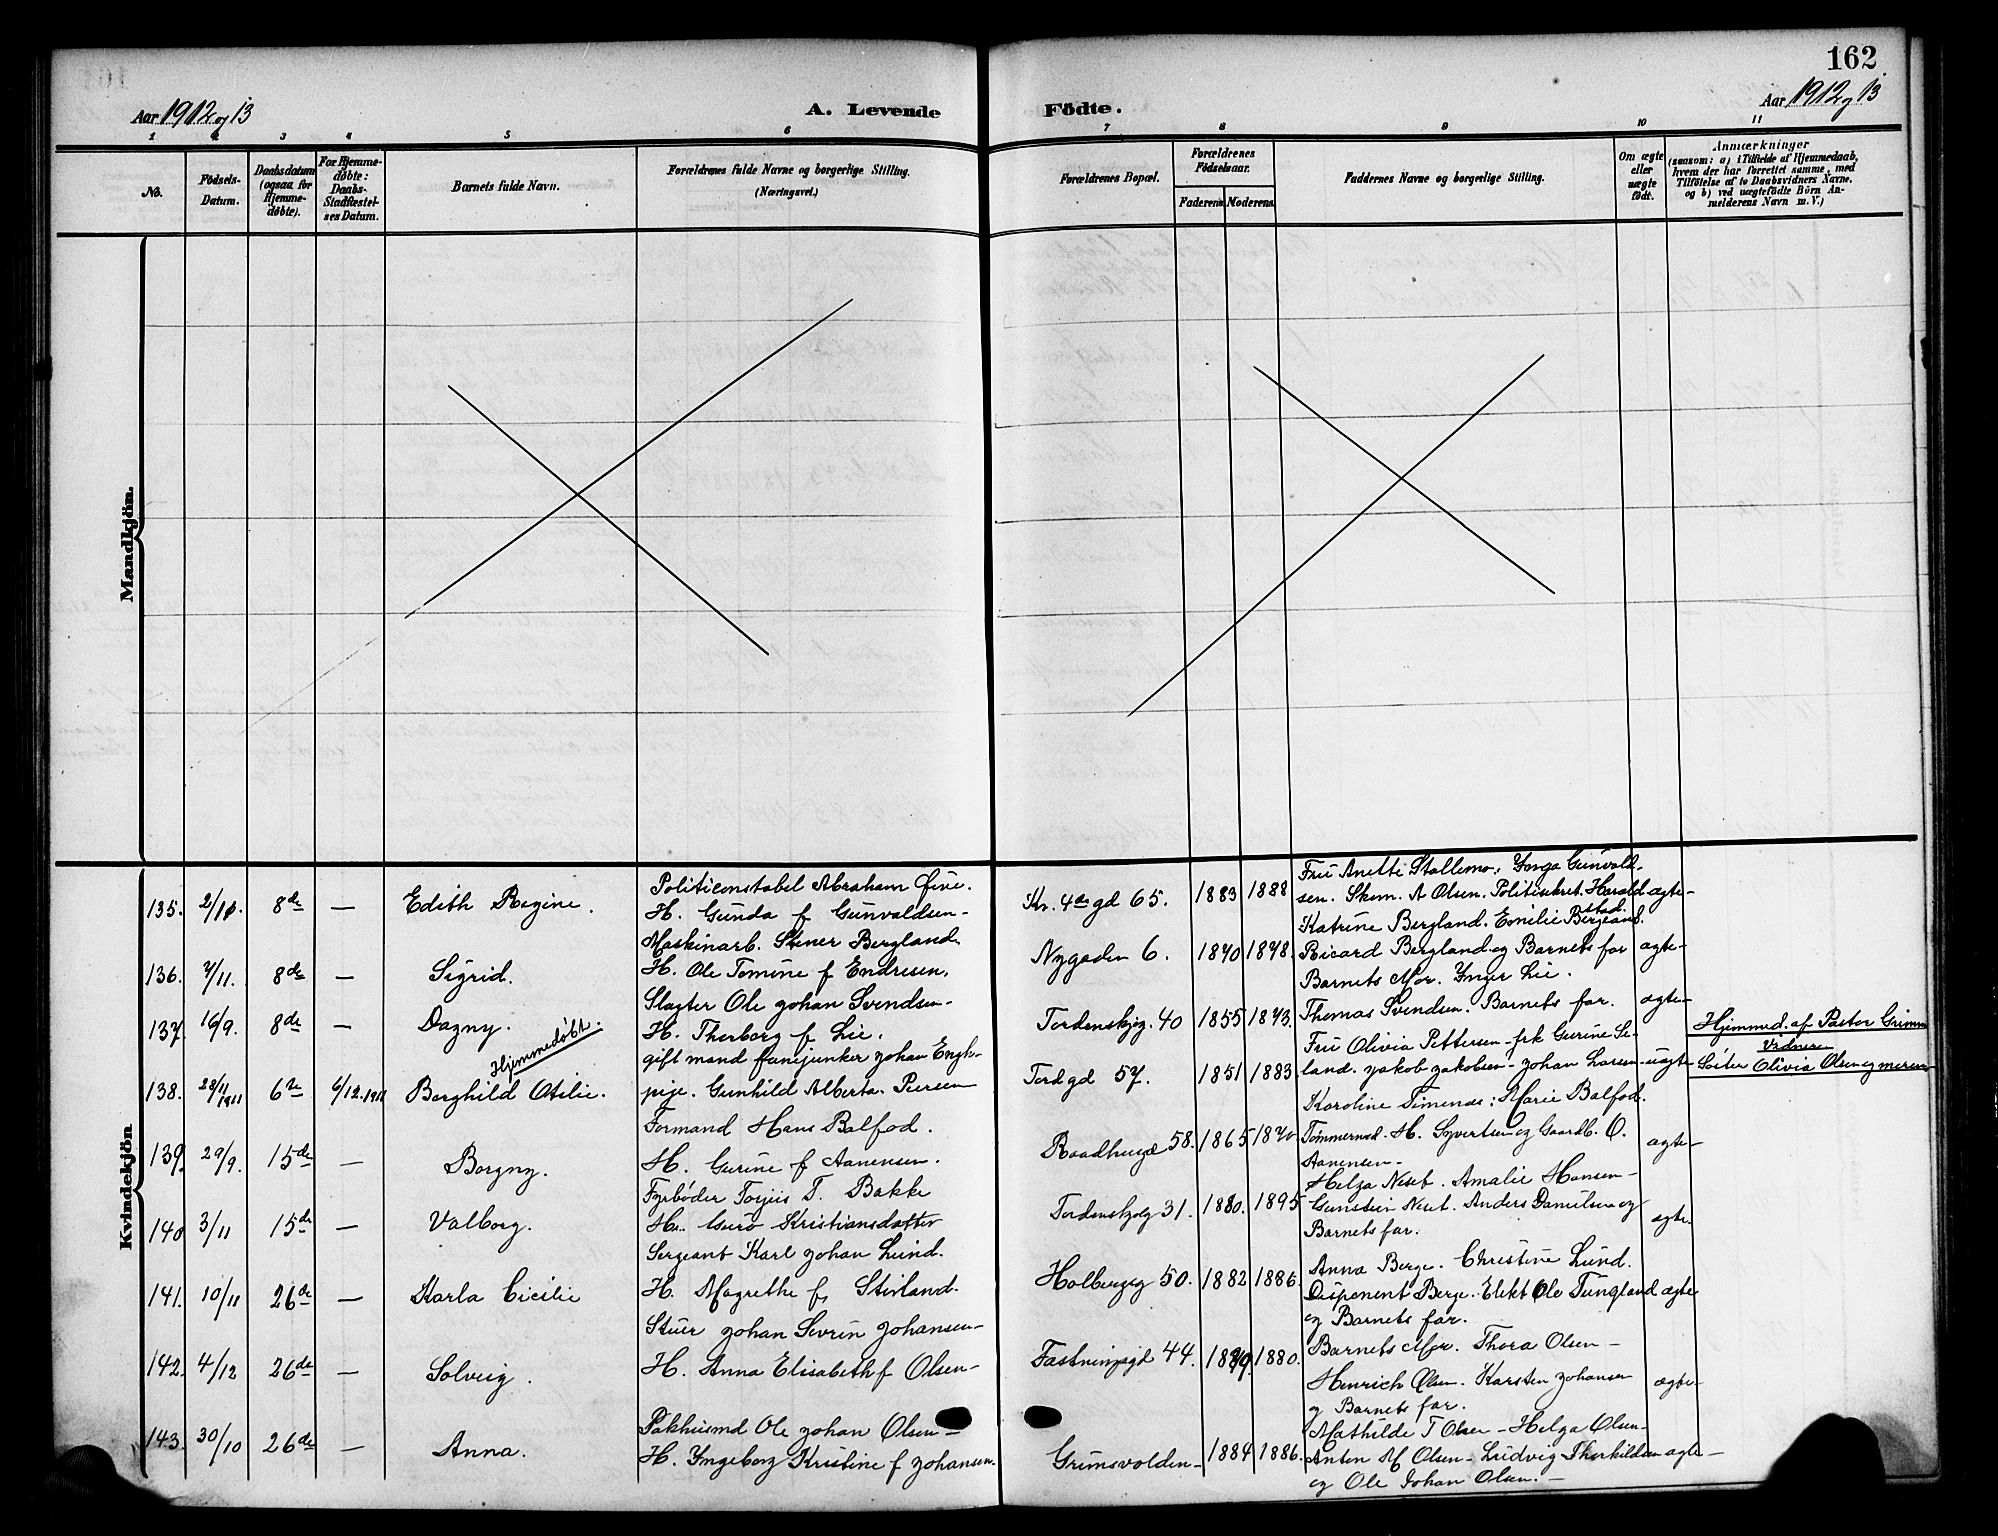 162
Aar 1912 og 13
A. Levende
Födte.
Aar 1912 og 13
1 2 3 4 5 6 7 8 9 10 11
No.
Födsels-Datum.
Daabsdatum (ogsaa for Hjemme-döbte).
For Hjemme-döbte: Daabs-Stadfæstel-ses Datum.
Barnets fulde Navn.
Forældrenes fulde Navne og borgerlige Stilling.
(Næringsvei.)
Forældrenes Bopæl.
Forældrenes Födselsaar.
Faderens
Moderens
Faddernes Navne og borgerlige Stilling.
Om ægte eller uægte födt.
Anmærkninger
(saasom: a) i Tilfælde af Hjemmedaab,
hvem der har forrettet samme, med
Tilföielse af to Daabsvidners Navne.
og b) ved uægtefödte Börn An-
melderens Navn m. V.)
Mandkjön.
Kvindekjön
Fru Anette Stallemo. Ynga Gunvald-
135. 8de — Edith Regine. Politiconstabel Abraham Øive. Kr. 4de gd 65. 1883 1888 sen. Skom. A Olsen. Harald ægte-
H. Gunda f Gunvaldsen- Katrine Bergland. Emilie Bergland.
Maskinarb. Stener Bergland.
136. 8de — Sigrid. H. Ole Tomine f Endresen. Nygaden 6. Ricard Bergland og Barnets far ægte-
Slagter Ole Johan Svendsen- Barnets Mor. Ynger Lie.
137. 16/9. 8de — Dagny. H. Therborg f Lie. Tordenskjg. 40 1855 Thomas Svendsen. Barnets far. ægte-
Hjemmedöbt.
Hjemmed. af Pastor Grimm
gift mand fanejunker Johan Fru Olivia Pettersen- frk Gurine Se-
Vidner
138. 28/11 1911 6te 6/12. 1911 Borghild Otilie. pige. Gunhild Alberta. Tordgd 57. 1851 1883. land. Jakob Jakobsen- Johan Larsen- uægte Olivia Olsen og moren-
Formand Hans Balfod. Karoline Timenes: Marie Balfod.
139. 29/9. 15de — Borgny. H. Gurine f Aanensen. Raadhusgd 58. 1865 Tømmermd. H. Syvertsen og Gaardb. O. ægte-
Aanensen-
Fyrbøder Torjus T. Bakke Helga Neset. Amalie Hansen-
140 3/11 15de — Valborg. H. Guro Kristiansdatter Tordenskjolg 31. 1880. 1895 Gunstein Neset. Anders Danielsen og ægte.
Barnets far.
Sergeant Karl Johan Lund. Anna Berge. Christine Lund.
141. 10/11 26de — Karla Cicilie H. Magrethe f. Stirland. Holbergsg 50. 1882 1886. Disponent Berge. Elekt Ole Tungland ægte
og Barnets far.
Stuer Johan Sevrin Johansen- Barnets Mor. Thora Olsen-
142. 4/12 26de — Solveig. H. Anna Elisabeth f Olsen- Fæstningsgd 44. 1880. Henrich Olsen. Karsten Johansen ægte-
og Barnets far.
Pakhusmd Ole Johan Olsen- Mathilde T Olsen- Helga Olsen-
143. 30/10 26de — Anna. H. Yngeborg Kristine f Johansen. Grimsvolden- 1884 1886. Anten M Olsen- Ludvig Therkildsen ægte-
og Ole Johan Olsen.-